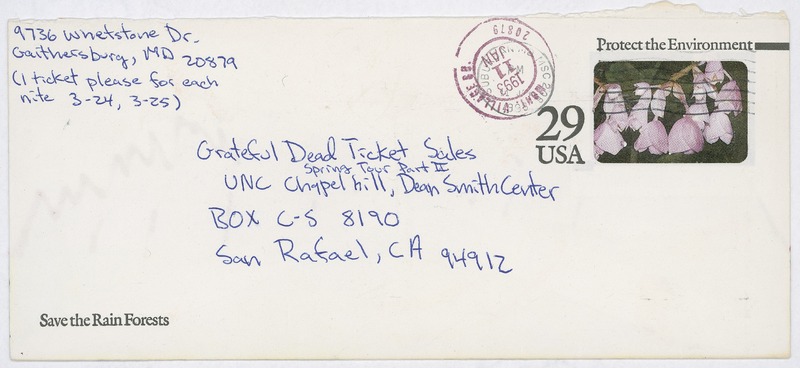 9736 Whetstone Dr.
Gaithersburg, MD 20879
(1 ticket please for each
nite 3-24, 3-25)
Protect the Environment
29
USA
1993
JAN
11
20879
Grateful Dead Ticket Sales
Spring Tour Part II
UNC Chapel hill, Dean Smith Center
BOX C-S 8190
San Rafael, CA 94912
Save the Rain Forests